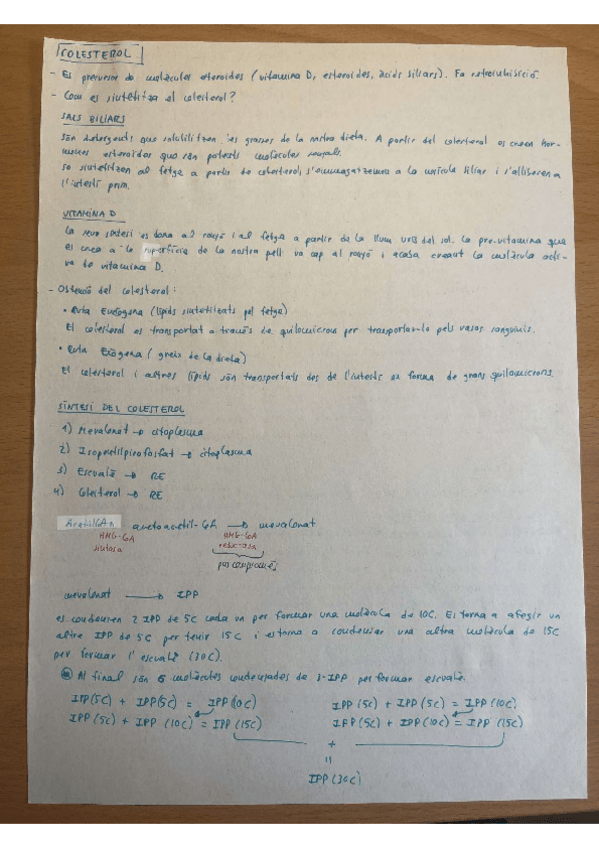 COLESTEROL
- Es precursor de molècules esteroides (vitamina D, esteroides, àcids biliars). Fa retroinhibició.
- Com es sintetitza el colesterol?
SALS BILIARS
Són detergents que solubilitzen les grasses de la nostra dieta. A partir del colesterol es creen hor-
mones esteroides que són potents molècules senyals.
Se sintetitzen al fetge a partir de colesterol, s'emmagatzemen a la vesícula biliar i s'alliberen a
l'intestí prim.
VITAMINA D
La seva síntesi es dona al ronyó i al fetge a partir de la llum UVB del sol. La pre-vitamina que
es crea a la superfície de la nostra pell va cap al ronyó i acaba creant la molècula acti-
va de vitamina D.
- Obtenció del colesterol:
• Ruta Endògena (lípids sintetitzats pel fetge)
El colesterol es transportat a través de quilomicron per transportarlo pels vasos sanguinis.
• Ruta Exògena (greix de la dieta)
El colesterol i altres lípids són transportats des de l'intestí en forma de grans quilomicrons.
SÍNTESI DEL COLESTEROL
1) Mevalonat → citoplasma
2) Isopentilpirofosfat → citoplasma
3) Escualè → RE
4) Colesterol → RE
acetoacetil-CoA → mevalonat
HMG-CoA HMG-CoA
sintasa reductasa
mevalonat → IPP
es condensen 2 IPP de 5C cada un per formar una molècula de 10C. Es torna a afegir un
altre IPP de 5C per tenir 15C i es torna a condensar una altra molècula de 15C
per formar l'escualè (30C).
Al final són 6 molècules condensades de 3-IPP per formar escualè.
IPP(5C) + IPP(5C) = IPP(10C) IPP(5C) + IPP(5C) = IPP(10C)
IPP(5C) + IPP(10C) = IPP(15C) IPP(5C) + IPP(10C) = IPP(15C)
+
=
IPP(30C)